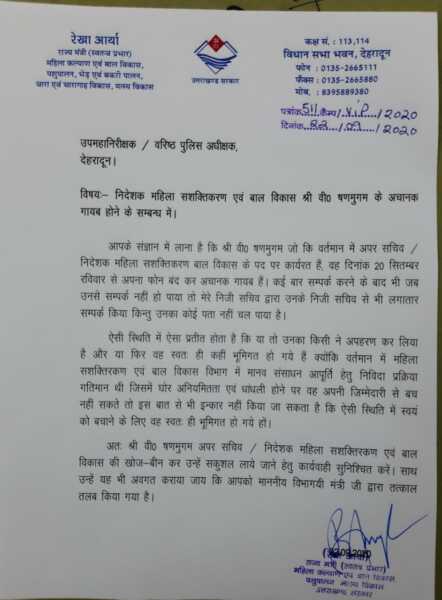 रेखा आर्या
राज्य मंत्री (स्वतन्त्र प्रभार)
महिला कल्याण एवं बाल विकास,
पशुपालन, भेड़ एवं बकरी पालन,
चारा एवं चारागाह विकास, मत्स्य विकास
उत्तराखण्ड सरकार
कक्ष सं. : 113,114
विधान सभा भवन, देहरादून
फोन : 0135-2665111
फैक्स : 0135-2665880
मोब. : 8395889380
पत्रांक 511 कैम्प/ V.I.P /2020
दिनांक 22 / 09 /2020
उपमहानिरीक्षक / वरिष्ठ पुलिस अधीक्षक,
देहरादून।
विषयः– निदेशक महिला सशक्तिकरण एवं बाल विकास श्री वी0 षणमुगम के अचानक
गायब होने के सम्बन्ध में।
आपके संज्ञान में लाना है कि श्री वी0 षणमुगम जो कि वर्तमान में अपर सचिव /
निदेशक महिला सशक्तिकरण बाल विकास के पद पर कार्यरत हैं, वह दिनांक 20 सितम्बर
रविवार से अपना फोन बंद कर अचानक गायब हैं। कई बार सम्पर्क करने के बाद भी जब
उनसे सम्पर्क नहीं हो पाया तो मेरे निजी सचिव द्वारा उनके निजी सचिव से भी लगातार
सम्पर्क किया किन्तु उनका कोई पता नहीं चल पाया है।
ऐसी स्थिति में ऐसा प्रतीत होता है कि या तो उनका किसी ने अपहरण कर लिया
है और या फिर वह स्वतः ही कहीं भूमिगत हो गये हैं क्योंकि वर्तमान में महिला
सशक्तिरकण एवं बाल विकास विभाग में मानव संसाधन आपूर्ति हेतु निविदा प्रक्रिया
गतिमान थी जिसमें घोर अनियमितता एवं धांधली होने पर वह अपनी जिम्मेदारी से बच
नहीं सकते तो इस बात से भी इन्कार नहीं किया जा सकता है कि ऐसी स्थिति में स्वयं
को बचाने के लिए वह स्वतः ही भूमिगत हो गये हों।
अतः श्री वी0 षणमुगम अपर सचिव / निदेशक महिला सशक्तिरकण एवं बाल
विकास की खोज–बीन कर उन्हें सकुशल लाये जाने हेतु कार्यवाही सुनिश्चित करें। साथ
उन्हें यह भी अवगत कराया जाय कि आपको माननीय विभागयी मंत्री जी द्वारा तत्काल
तलब किया गया है।
राज्य मंत्री (स्वतंत्र प्रभार)
महिला कल्याण एवं बाल विकास
पशुपालन मत्स्य विकास
उत्तराखण्ड सरकार